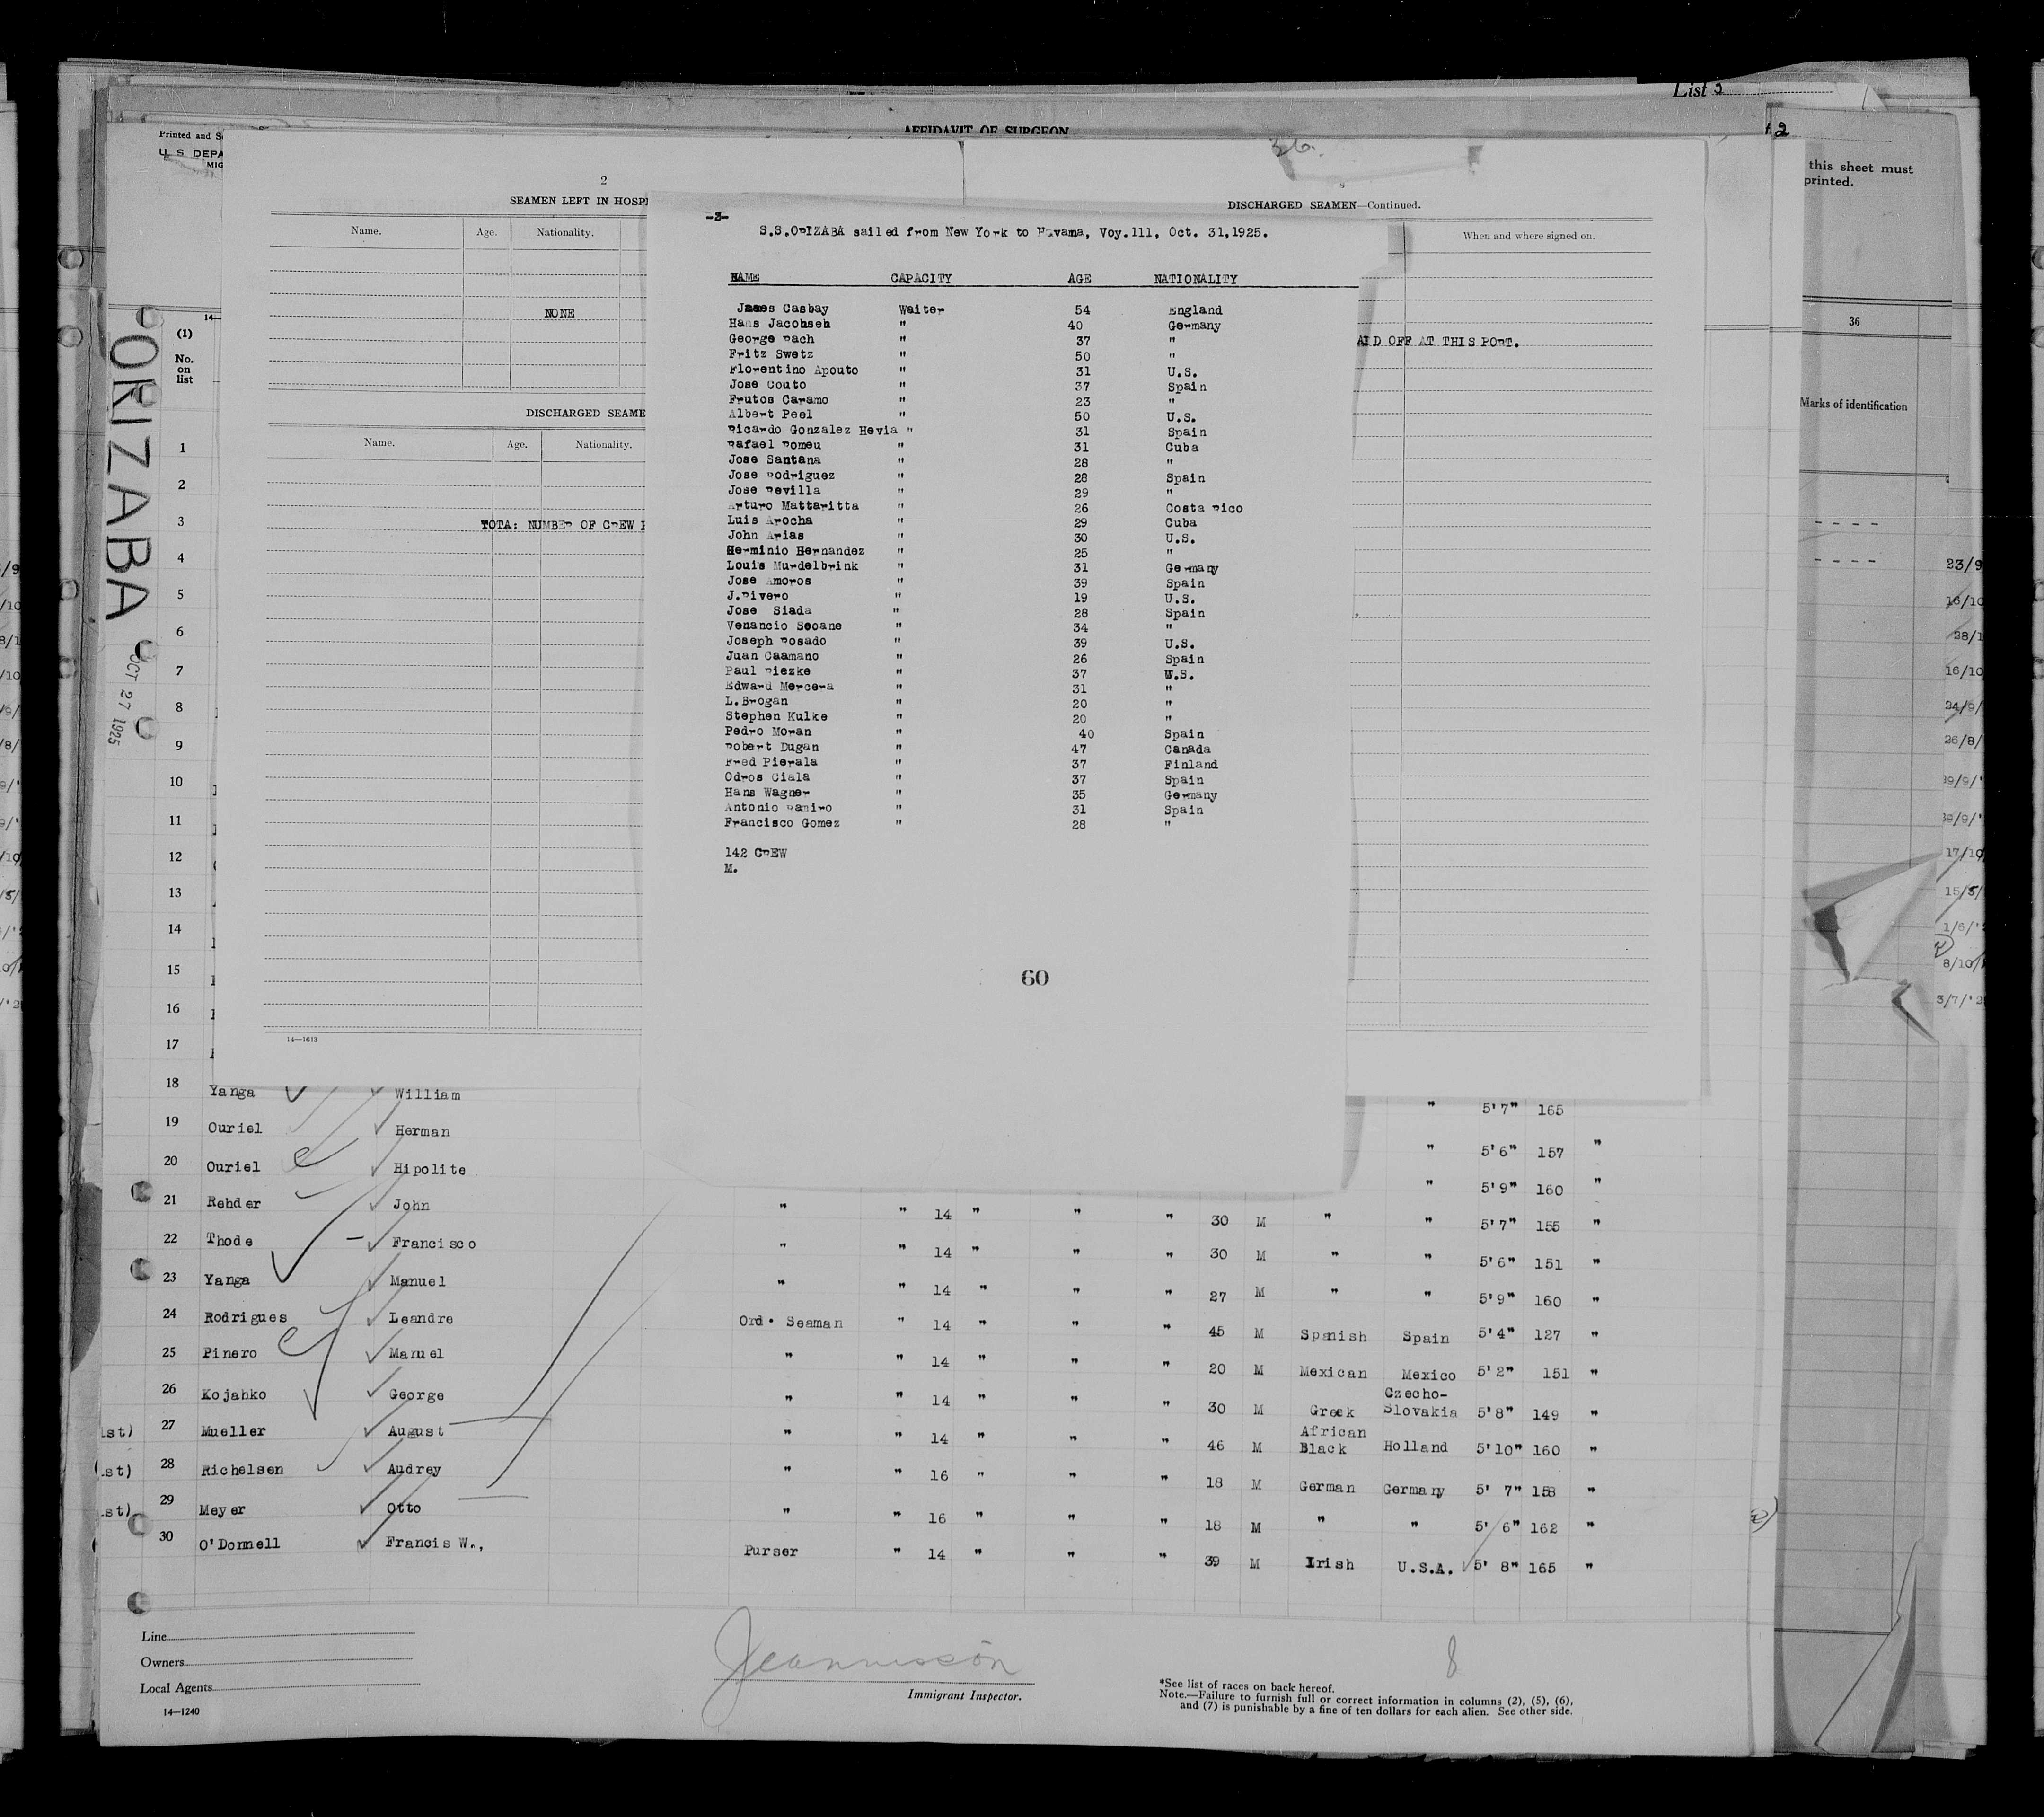 List 3
AFFIDAVIT OF SURGEON
2
this sheet must
printed.
Printed and
U. S. DEPA
MIG
36.
2
SEAMEN LEFT IN HOSPI
Name. Age. Nationality.
NONE
DISCHARGED SEAME
Name. Age. Nationality.
TOTA: NUMBER OF CREW
14—1613
DISCHARGED SEAMEN—Continued.
When and where signed on.
AID OFF AT THIS PORT.
36
Marks of identification
-3-
S.S.ORIZABA sailed from New York to Havama, Voy.111, Oct. 31,1925.
NAME CAPACITY AGE NATIONALITY
James Casbay Waiter 54 England
Hans Jacohseh " 40 Germany
George Bach " 37 "
Fritz Swetz " 50 "
Florentino Apouto " 31 U.S.
Jose Couto " 37 Spain
Frutos Caramo " 23 "
Albert Peel " 50 U.S.
Ricardo Gonzalez Hevia " 31 Spain
Rafael Romeu " 31 Cuba
Jose Santana " 28 "
Jose Rodriguez " 28 Spain
Jose Revilla " 29 "
Arturo Mattaritta " 26 Costa Rico
Luis Arocha " 29 Cuba
John Arias " 30 U.S.
Herminio Hernandez " 25 "
Louis Murdelbrink " 31 Germany
Jose Amoros " 39 Spain
J.Rivero " 19 U.S.
Jose Siada " 28 Spain
Venancio Seoane " 34 "
Joseph Rosado " 39 U.S.
Juan Caamano " 26 Spain
Paul Riezke " 37 U.S.
Edward Mercera " 31 "
L.Brogan " 20 "
Stephen Kulke " 20 "
Pedro Moran " 40 Spain
Robert Dugan " 47 Canada
Fred Pierala " 37 Finland
Odros Ciala " 37 Spain
Hans Wagner " 35 Germany
Antonio Ramiro " 31 Spain
Francisco Gomez " 28 "
142 CREW
M.
60
ORIZABA
OCT 27 1925
(1)
No.
on
list
1
2
3
4
5
6
7
8
9
10
11
12
13
14
15
16
17
18 Yanga William " 5'7" 165
19 Ouriel Herman " 5'6" 157 "
20 Ouriel Hipolite " 5'9" 160 "
21 Rehder John " " 14 " " " 30 M " " 5'7" 155 "
22 Thode Francisco " " 14 " " " 30 M " " 5'6" 151 "
23 Yanga Manuel " " 14 " " " 27 M " " 5'9" 160 "
24 Rodrigues Leandre Ord. Seaman " 14 " " " 45 M Spanish Spain 5'4" 127 "
25 Pinero Manuel " " 14 " " " 20 M Mexican Mexico 5'2" 151 "
26 Kojahko George " " 14 " " " 30 M Greek Czecho-Slovakia 5'8" 149 "
27 Mueller August " " 14 " " " 46 M African Black Holland 5'10" 160 "
28 Richelsen Audrey " " 16 " " " 18 M German Germany 5' 7" 158 "
29 Meyer Otto " " 16 " " " 18 M " " 5' 6" 162 "
30 O'Donnell Francis W., Purser " 14 " " " 39 M Irish U.S.A. 5' 8" 165 "
23/9
16/10
28/1
16/10
24/9/
26/8/
17/10
15/5/
1/6/'
8/10/
3/7/'2
Line
Owners
Local Agents
14—1240
Immigrant Inspector.
8
*See list of races on back hereof.
Note.—Failure to furnish full or correct information in columns (2), (5), (6),
and (7) is punishable by a fine of ten dollars for each alien. See other side.